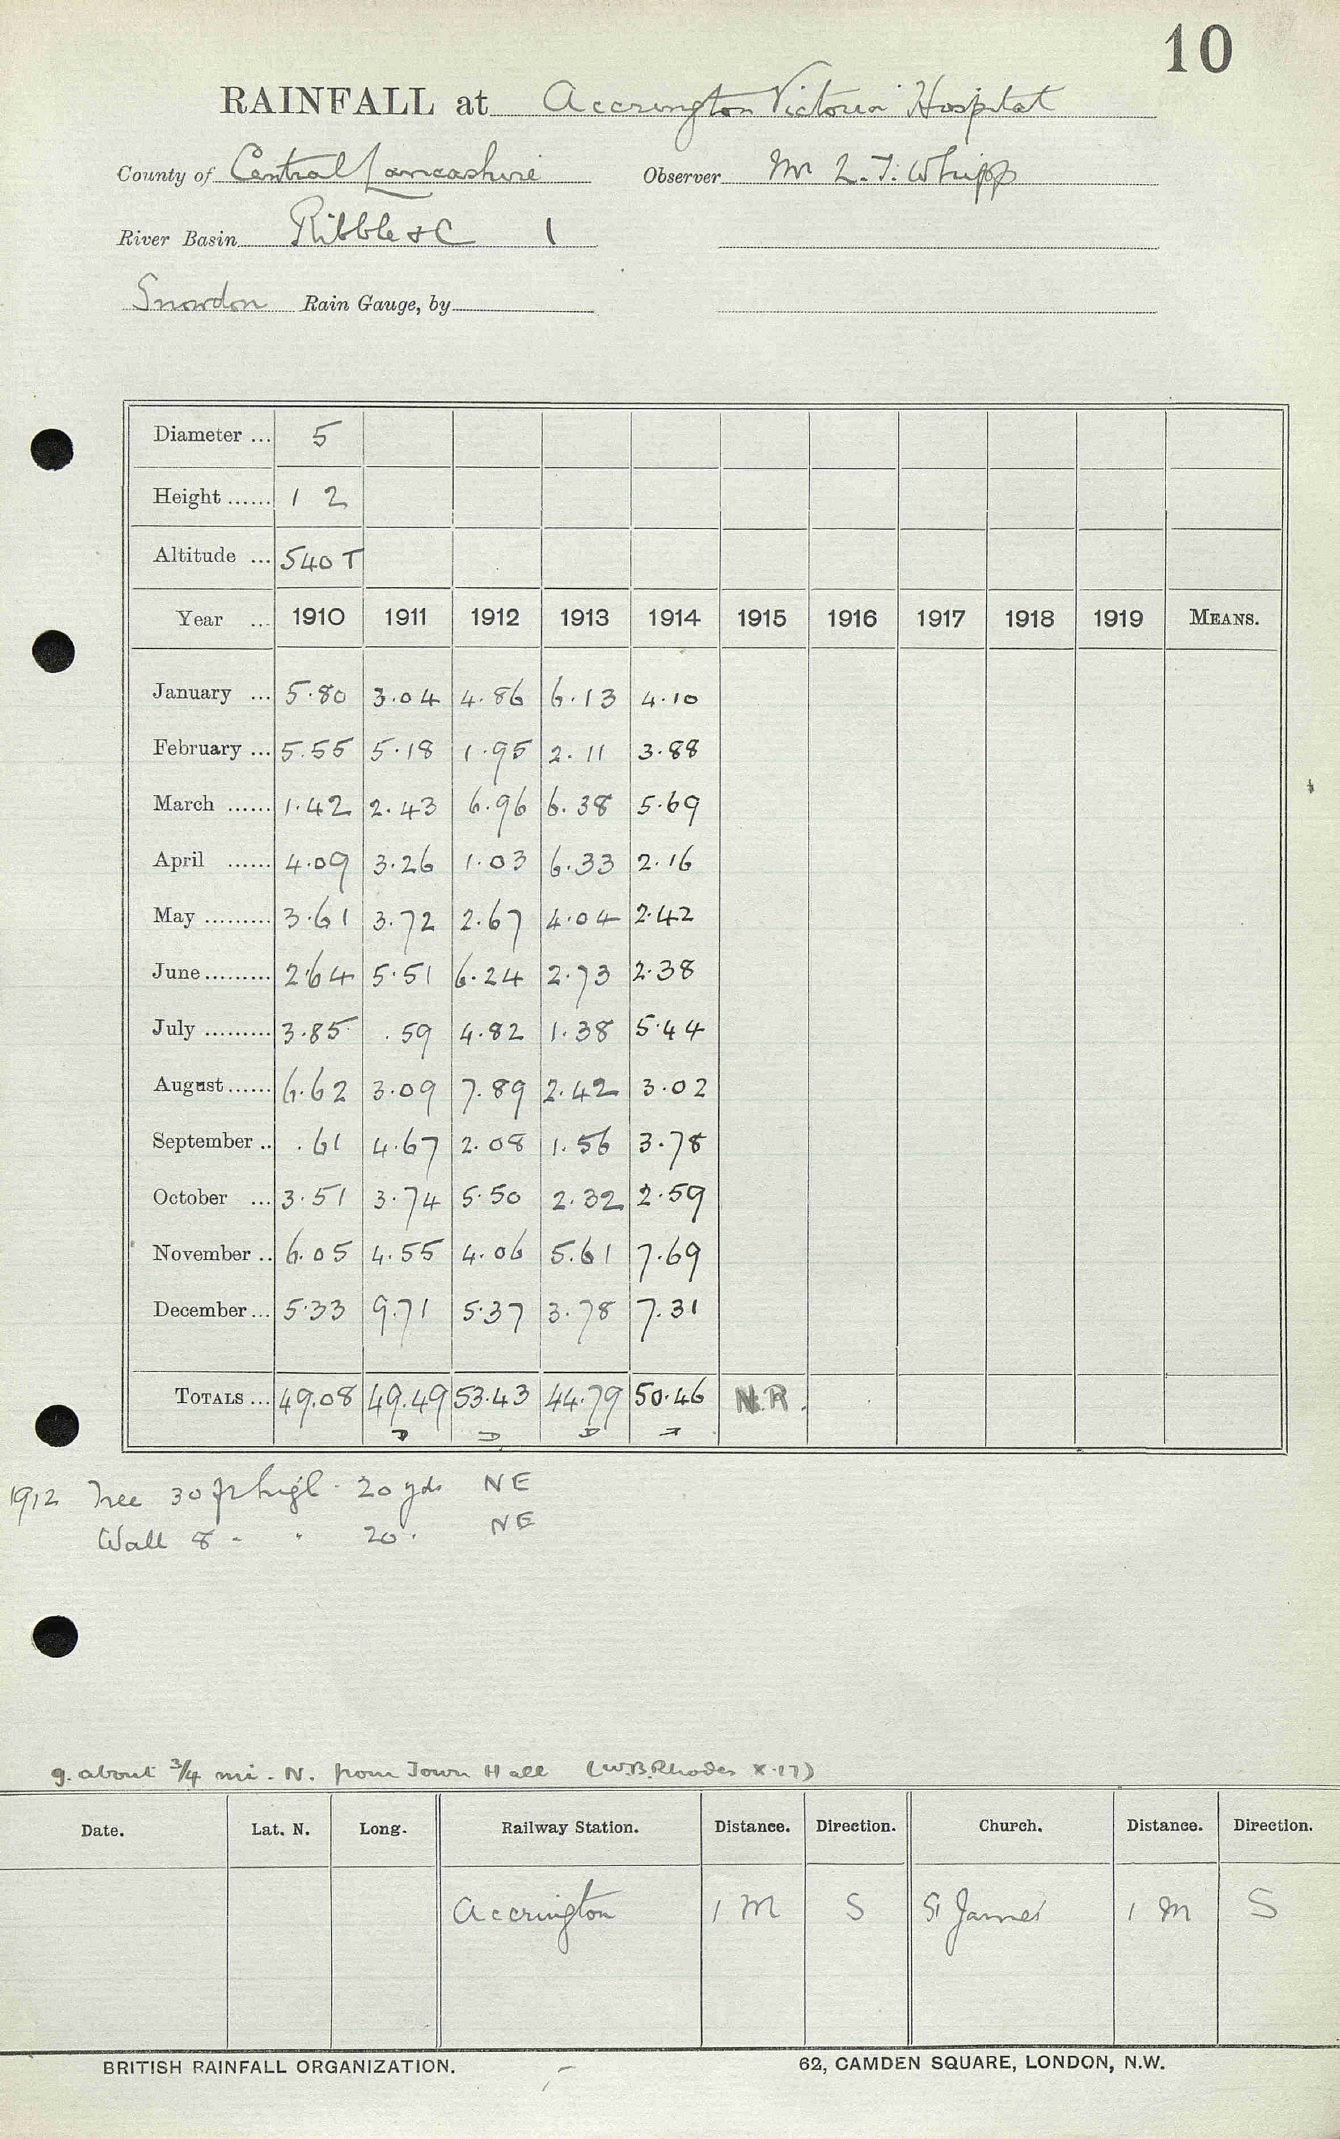 10
RAINFALL at Accrington Victoria Hospital
County of Central Lancashire Observer Mr L. T. Whipp
River Basin Ribble &C 1
Snowdon Rain Gauge, by
Diameter ... 5
Height ...... 1 2
Altitude ... 540 T
Year ... 1910 1911 1912 1913 1914 1915 1916 1917 1918 1919 MEANS.
January ... 5.80 3.04 4.86 6.13 4.10
February ... 5.55 5.18 1.95 2.11 3.88
March ...... 1.42 2.43 6.96 6.38 5.69
April ...... 4.09 3.26 1.03 6.33 2.16
May ......... 3.61 3.72 2.67 4.04 2.42
June ......... 2.64 5.51 6.24 2.73 2.38
July ......... 3.85 .59 4.82 1.38 5.44
August ...... 6.62 3.09 7.89 2.42 3.02
September .. .61 4.67 2.08 1.56 3.78
October ... 3.51 3.74 5.50 2.32 2.59
November .. 6.05 4.55 4.06 5.61 7.69
December ... 5.33 9.71 5.37 3.78 7.31
TOTALS ... 49.08 49.49 53.43 44.79 50.46 N.R.
1912 Tree 30 ft high . 20 yds NE
Wall 8 " " 20 . NE
g. about 3/4 mi. N. from Town Hall (W.B.Rhodes X.17)
Date. Lat. N. Long. Railway Station. Distance. Direction. Church. Distance. Direction.
Accrington 1 M S St James' 1 M S
BRITISH RAINFALL ORGANIZATION. 62, CAMDEN SQUARE, LONDON, N.W.